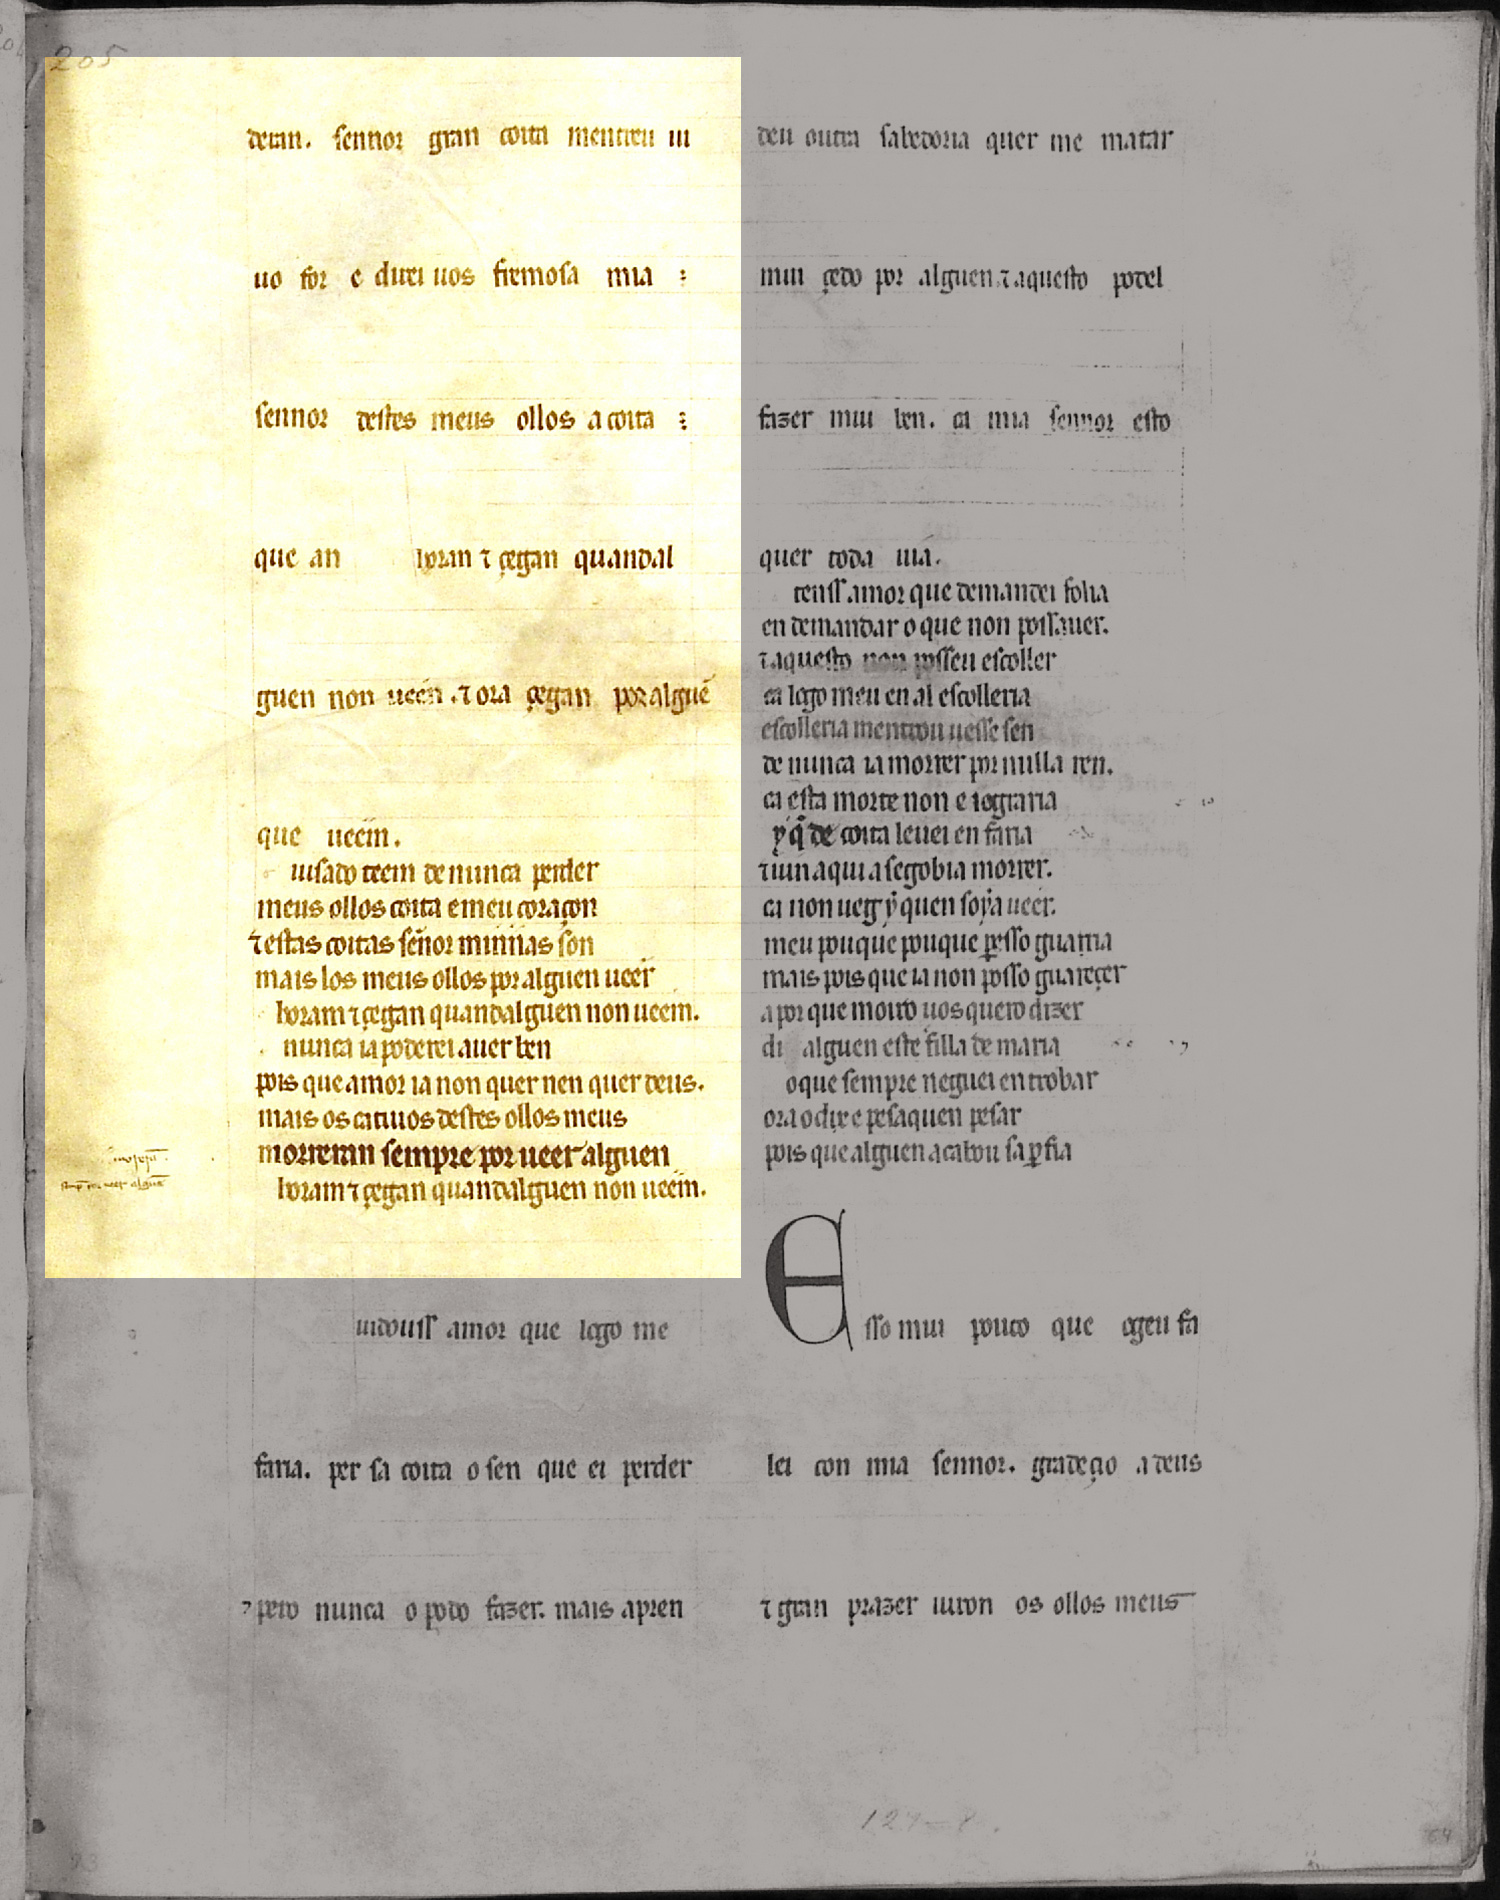 205
deran. sennor gran coita mentreu ui
uo for e direi uos fremosa mia :
sennor destes meus ollos a coita :
que an choran ⁊ çegan quandal
guen non ueen .⁊ ora çegan por alguẽ
que ueem.
uisado teem de nunca perder
meus ollos coita e meu coraçon
⁊ estas coitas señor minnas son
mais los meus ollos por alguen ueer
horam ⁊ çegan quandalguen non ueem.
nunca ia poderei auer ben
pois que amor ia non quer nen quer deus.
mais os catiuos destes ollos meus
morreran sempre por ueer alguen
horam ⁊ çegan quandalguen non ueem.
uidouiss amor que logo me
faria. per sa coita o sen que ei perder
⁊ pero nunca o podo fazer. mais apren
deu outra sabedoria quer me matar
mui çedo por alguen. ⁊ aquesto podel
fazer mui ben. ca mia sennor esto
quer toda uia.
teniss amor que demandei folia
en demandar o que non poss auer.
⁊ aquesto non posseu escoller
ca logo meu en al escolleria
escolleria mentrou uesse sen
de nunca ia morrer por nulla ren.
ca esta morte non e iograria
y q̃ de coita leuei en faria
⁊ uin aqui a segobia morrer.
ca non ueg y quen soya ueer.
meu pouque pouque ꝑesso guarria
mais pois que ia non posso guareçer
a por que moiro uos quero dizer
di alguen este filla de maria
o que sempre neguei en trobar
ora o dixe pesaquen pesar
pois que alguen acabou sa ꝑfia
Esso mui pouco que ogeu fa
lei con mia sennor. gradeçio a deus
⁊ gran prazer uiron os ollos meus